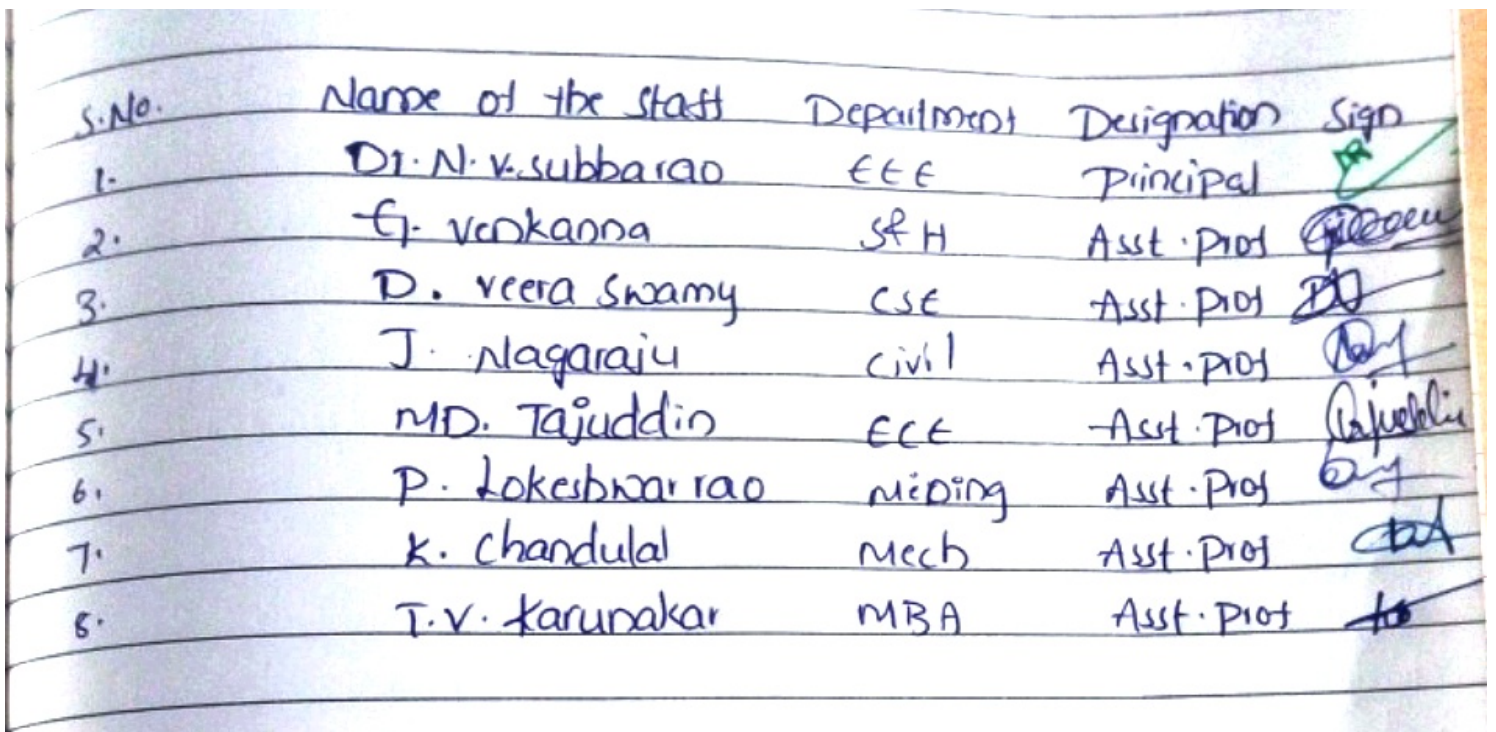 S.No. Name of the staff Department Designation Sign
1. Dr. N. V. subbarao EEE Principal
2. G. Venkanna S&H Asst. Prof
3. D. veera swamy CSE Asst. Prof
4. J. Nagaraju Civil Asst. Prof
5. MD. Tajuddin ECE Asst. Prof Tajuddin
6. P. Lokeshwar rao Mining Asst. Prof
7. K. Chandulal Mech Asst. Prof
8. T.V. Karunakar MBA Asst. Prof